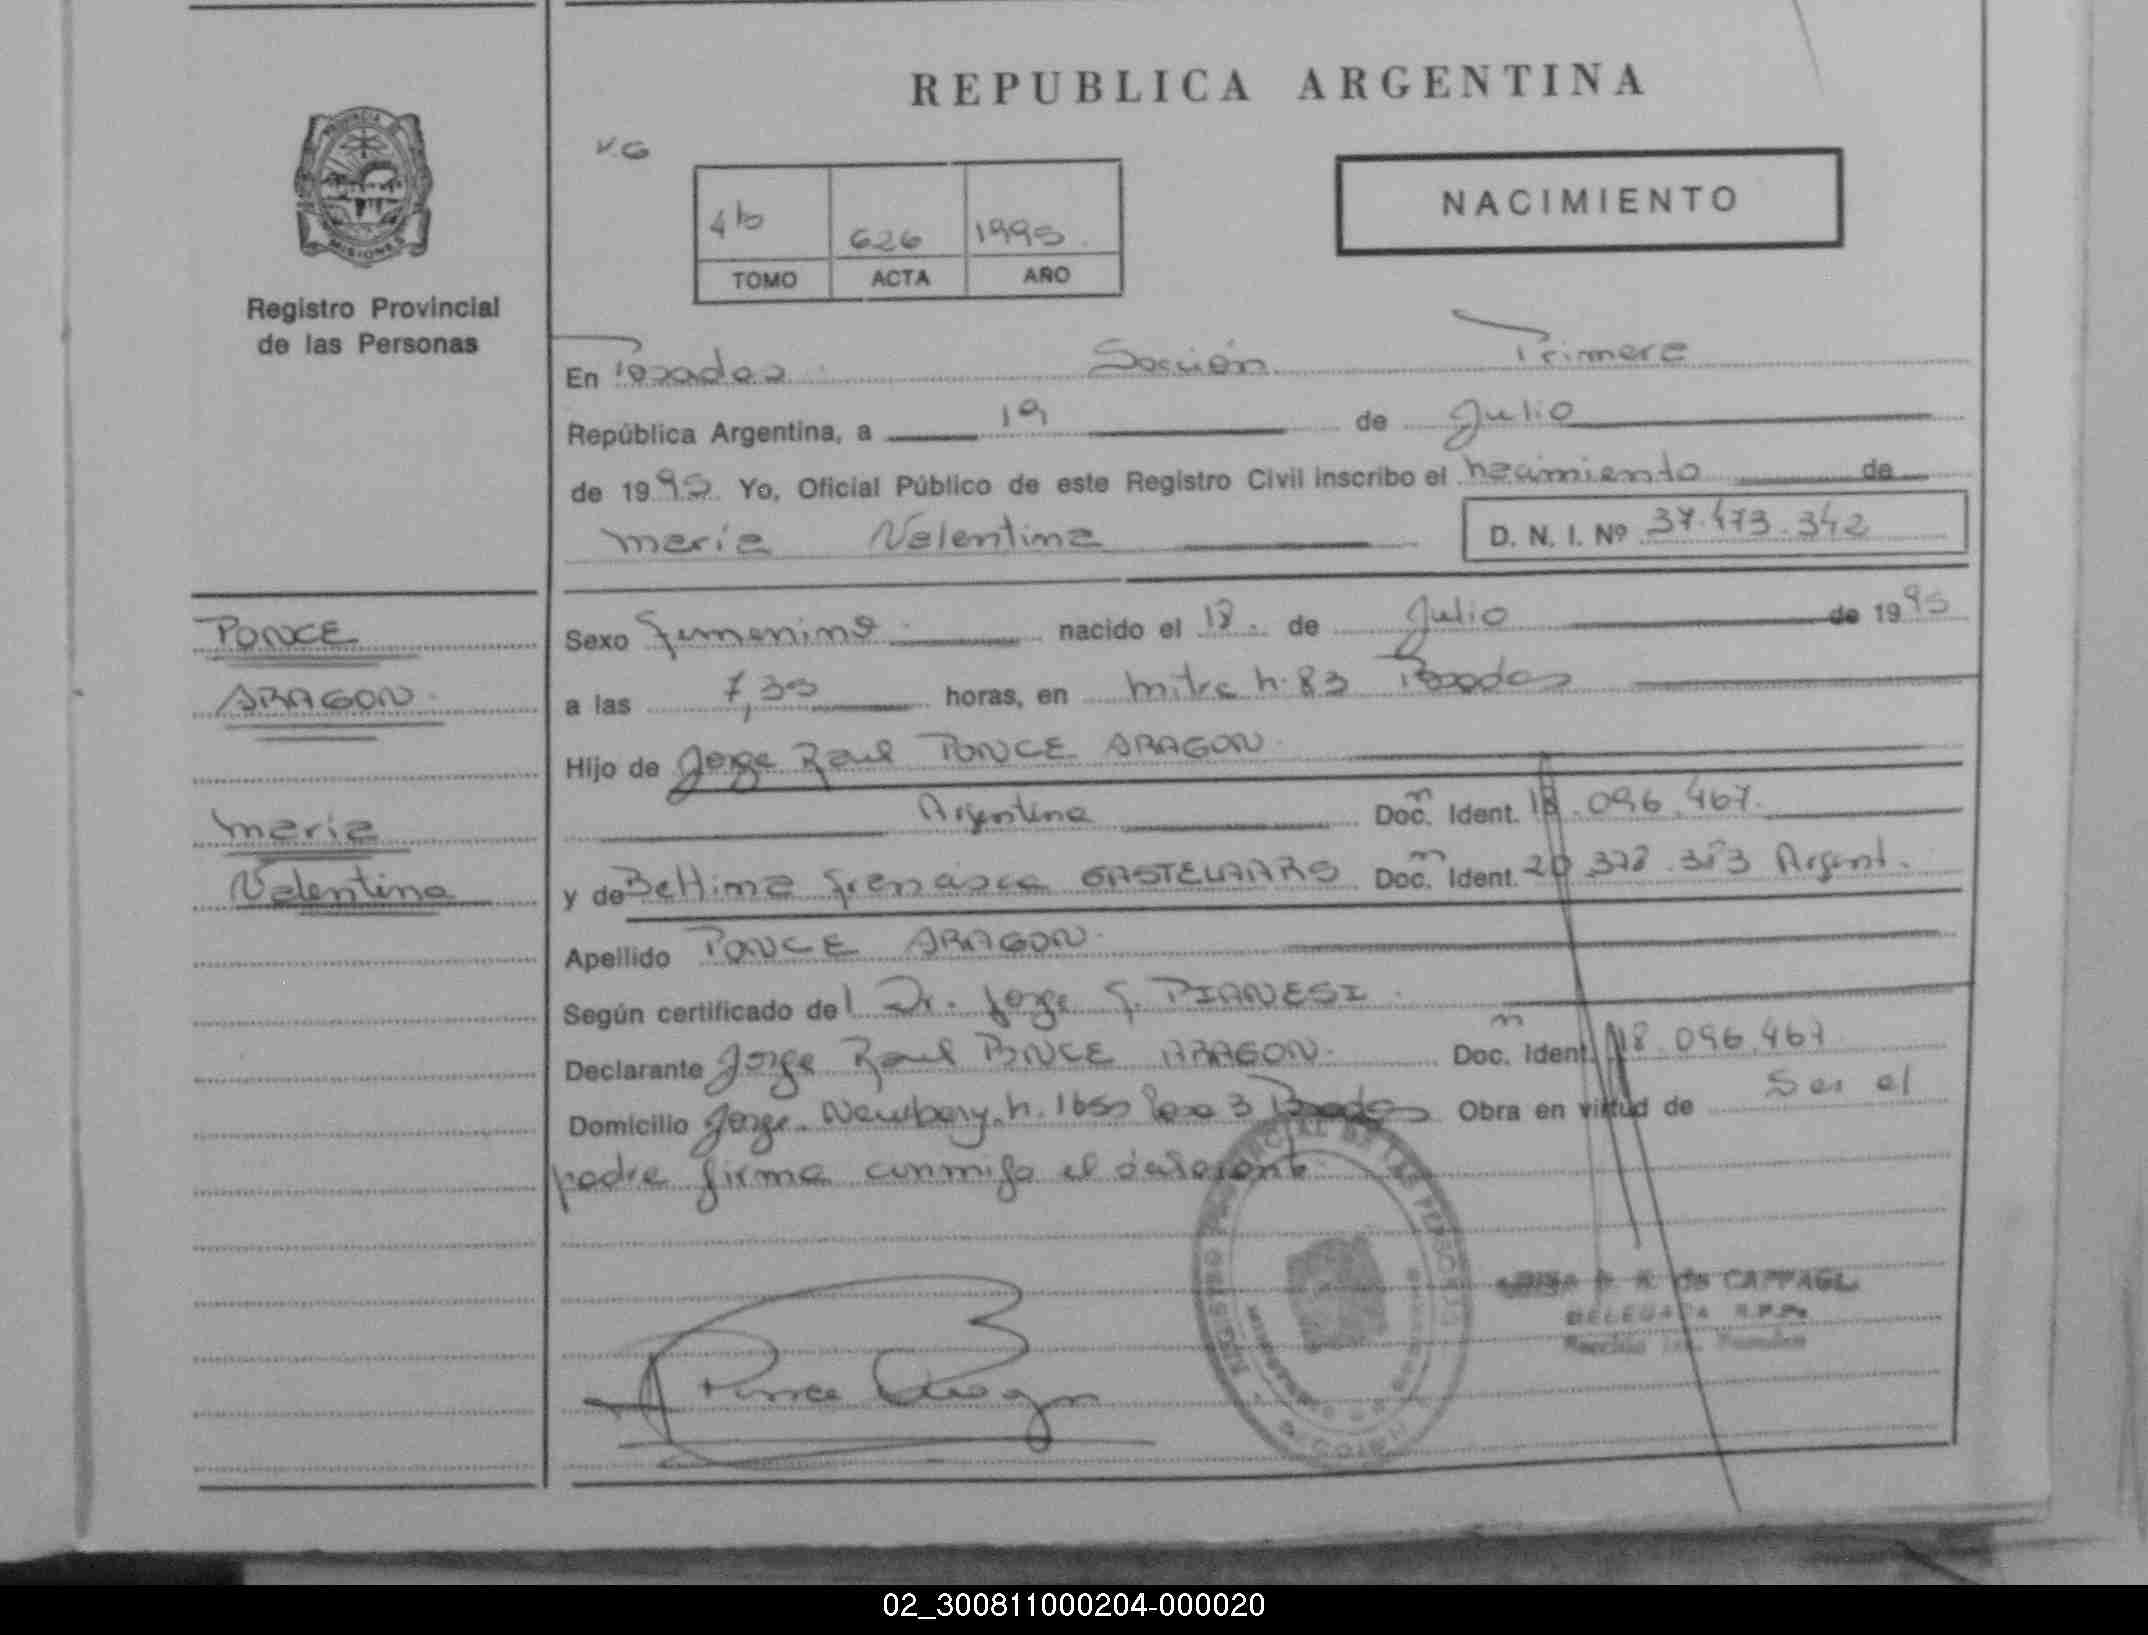 REPUBLICA ARGENTINA
PROVINCIA DE
MISIONES
Registro Provincial
de las Personas
V.G
NACIMIENTO
626 1995
TOMO ACTA AÑO
En Posadas Sección Primera
República Argentina, a 19 de Julio
de 1995 Yo, Oficial Público de este Registro Civil inscribo el nacimiento de
Maria Valentina D. N. I. Nº 37.473.342
PONCE
ARAGON
Maria
Valentina
Sexo Femenino nacido el 18 de Julio de 1995
a las 7,30 horas, en Mitre n. 83 Posadas
Hijo de Jorge Raul PONCE ARAGON
Argentina Doc. Ident. 18.096.467
y de Bettina Francisca GASTELAARS Doc. Ident. 20.378.313 Argent.
Apellido PONCE ARAGON
Según certificado del Dr. Jorge PIANESI
Declarante Jorge Raul PONCE ARAGON Doc. Ident. 18.096.467
Domicilio Jorge Newbery n. 1650 3 Posadas Obra en virtud de Ser el
padre firma conmigo el
Ponce Aragon
de CAPPAGL
DELEGADA R.P.P.
Sección Posadas
02_300811000204-000020